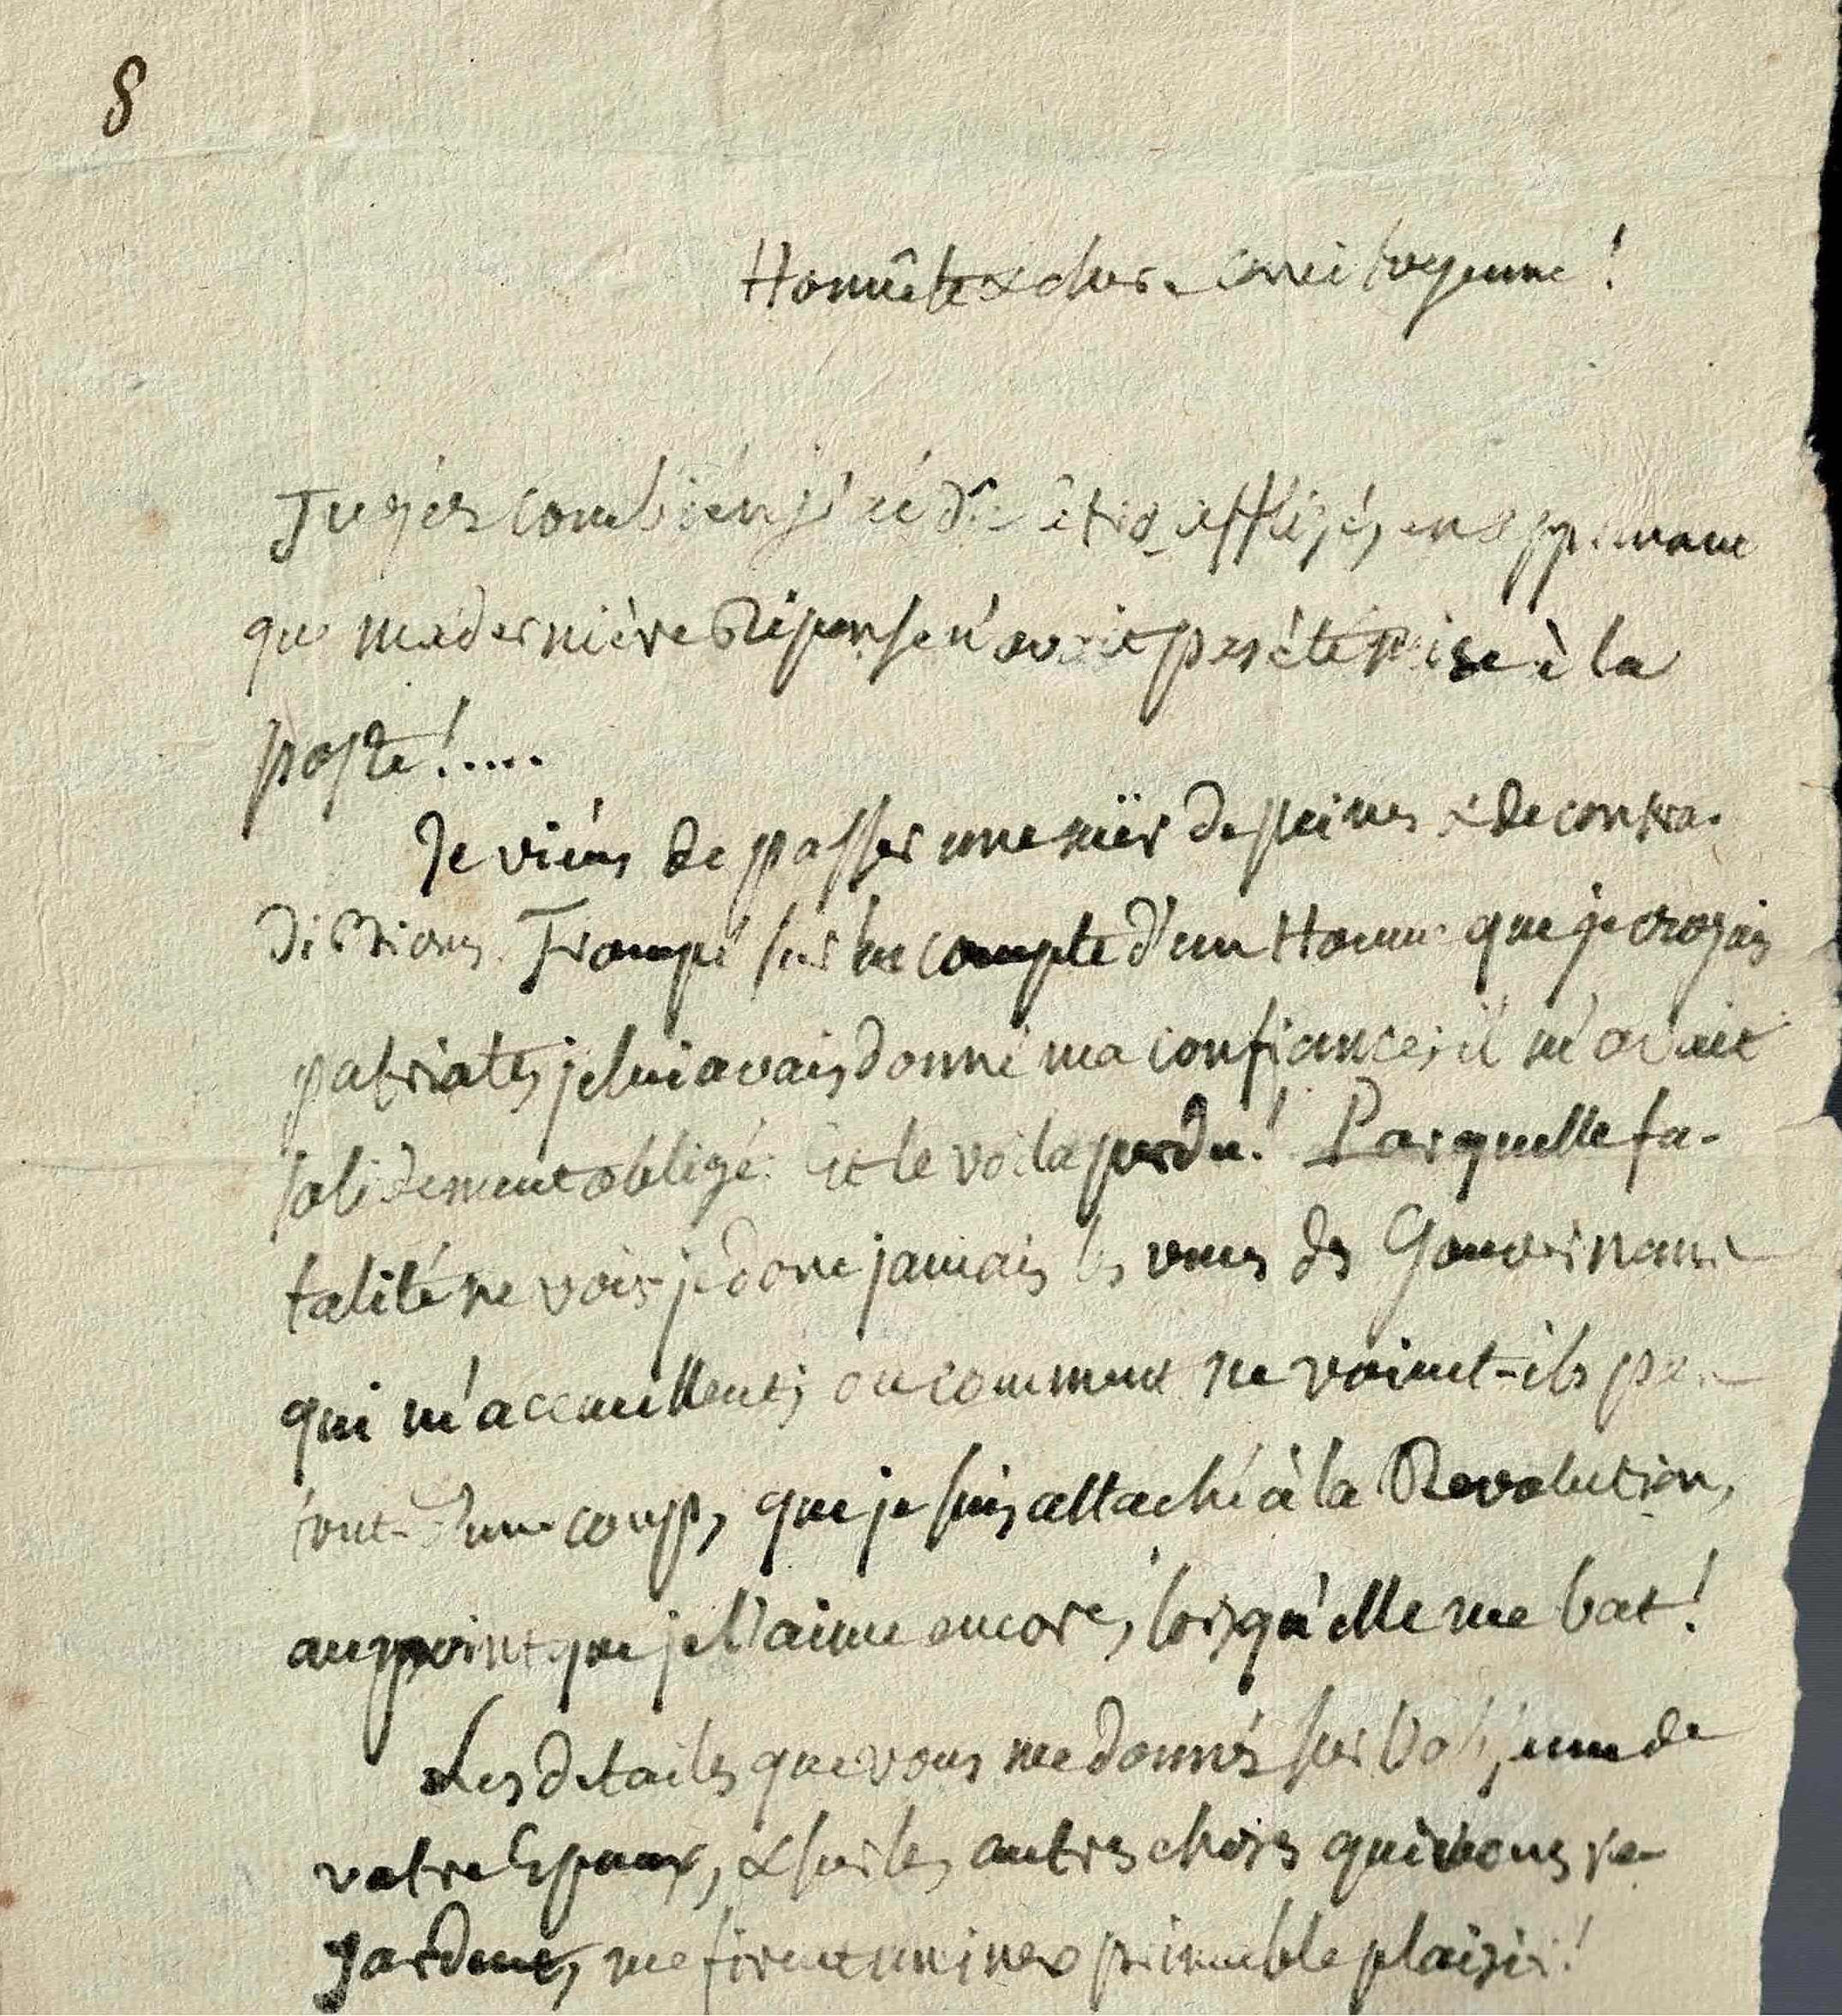 8
Honnête & chère Concitoyenne!
Jugés combien j'ai dû être affligé, en apprenant
que ma dernière Réponse n'avait pas été mise à la
poste!.....
Je viens de passer une mër de peines & de contra-
dictions. Trompé sur le compte d'un Homme que je croyais
patriote, je lui avais donné ma confiance; il m'avait
solidement obligé: Et le voila perdu! Par quelle fa-
talité ne vois-je donc jamais les vues des Gouvernans
qui m'accueillent; ou comment ne voient-ils pas
tout-d'un-coup, que je suis attaché à la Revolution,
au point que je l'aime encore, lorsqu'elle me bat!
Les détails que vous me donnés sur de
votre Epoux, & sur les autres choses qui vous re-
gardent, me firent un inexprimable plaisir!